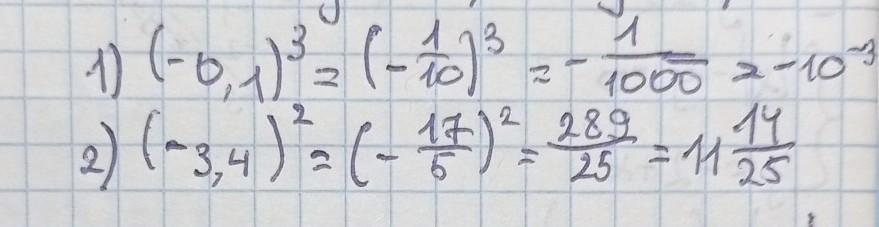 1) (-0,1)³ = (-1/10)³ = -1/1000 = -10⁻³
2) (-3,4)² = (-17/5)² = 289/25 = 11 14/25